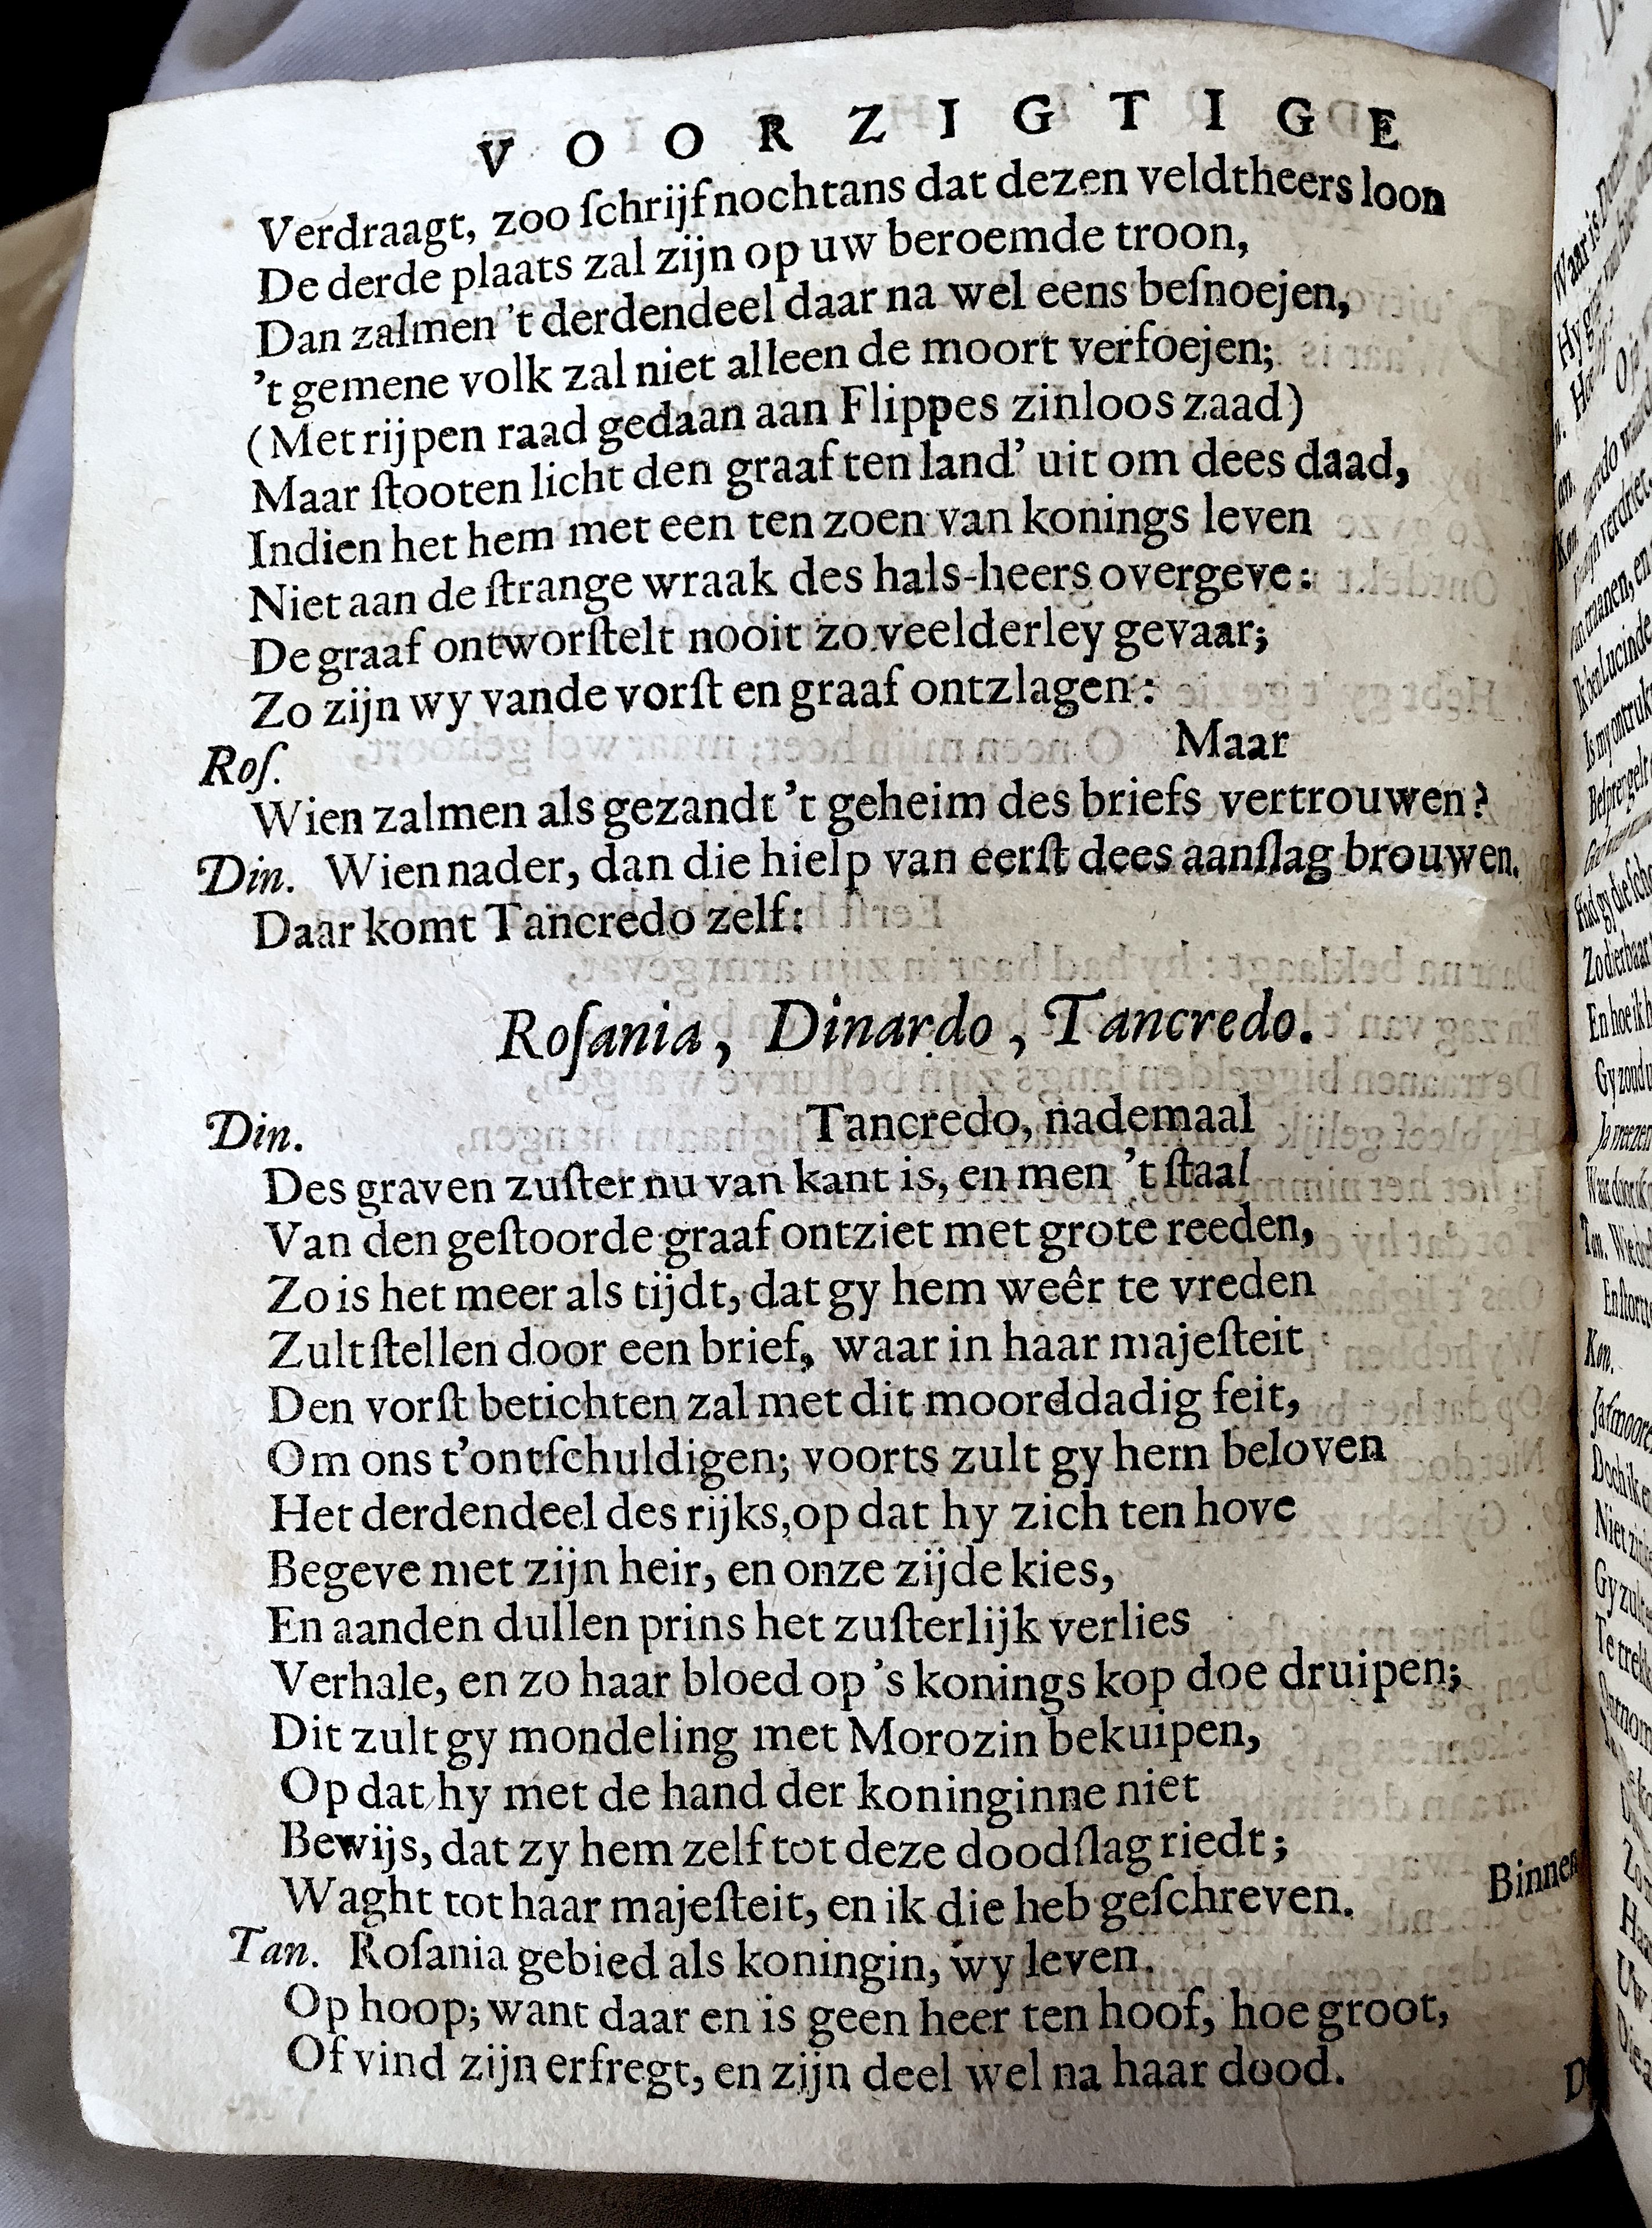 VOORZIGTIGE
Verdraagt, zoo ſchrijf nochtans dat dezen veldtheers loon
De derde plaats zal zijn op uw beroemde troon,
Dan zalmen 't derdendeel daar na wel eens beſnoejen,
't gemene volk zal niet alleen de moort verfoejen;
(Met rijpen raad gedaan aan Flippes zinloos zaad)
Maar ſtooten licht den graaf ten land' uit om dees daad,
Indien het hem met een ten zoen van konings leven
Niet aan de ſtrange wraak des hals-heers overgeve:
De graaf ontworſtelt nooit zo veelderley gevaar;
Zo zijn wy vande vorſt en graaf ontzlagen:
Roſ. Maar
Wien zalmen als gezandt 't geheim des briefs vertrouwen?
Din. Wien nader, dan die hielp van eerſt dees aanſlag brouwen.
Daar komt Tancredo zelf:
Roſania, Dinardo, Tancredo.
Din. Tancredo, nademaal
Des graven zuſter nu van kant is, en men 't ſtaal
Van den geſtoorde graaf ontziet met grote reeden,
Zo is het meer als tijdt, dat gy hem weêr te vreden
Zult ſtellen door een brief, waar in haar majeſteit
Den vorſt betichten zal met dit moorddadig feit,
Om ons t'ontſchuldigen; voorts zult gy hem beloven
Het derdendeel des rijks, op dat hy zich ten hove
Begeve met zijn heir, en onze zijde kies,
En aanden dullen prins het zuſterlijk verlies
Verhale, en zo haar bloed op 's konings kop doe druipen;
Dit zult gy mondeling met Morozin bekuipen,
Op dat hy met de hand der koninginne niet
Bewijs, dat zy hem zelf tot deze doodſlag riedt;
Waght tot haar majeſteit, en ik die heb geſchreven. Binnen
Tan. Roſania gebied als koningin, wy leven.
Op hoop; want daar en is geen heer ten hoof, hoe groot,
Of vind zijn erfregt, en zijn deel wel na haar dood.